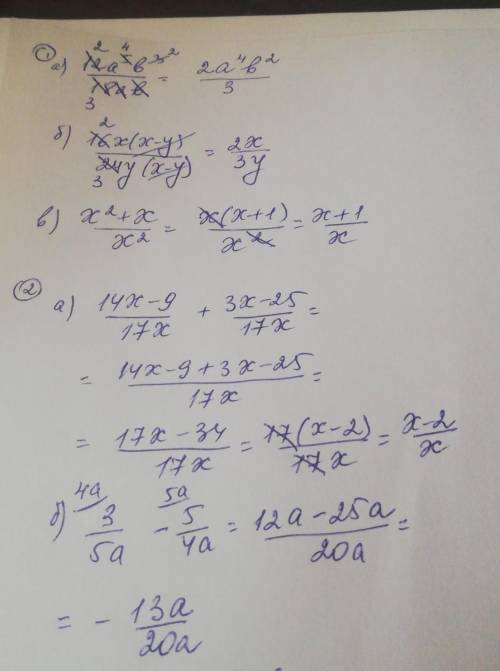 ① а) 12a⁵b³ / 18ab = 2a⁴b² / 3
б) 16x(x-y) / 24y(x-y) = 2x / 3y
в) x²+x / x² = x(x+1) / x² = x+1 / x
② а) 14x-9 / 17x + 3x-25 / 17x =
= 14x-9+3x-25 / 17x =
= 17x-34 / 17x = 17(x-2) / 17x = x-2 / x
б) 4a/ 3 / 5a - 5a/ 5 / 4a = 12a-25a / 20a =
= - 13a / 20a